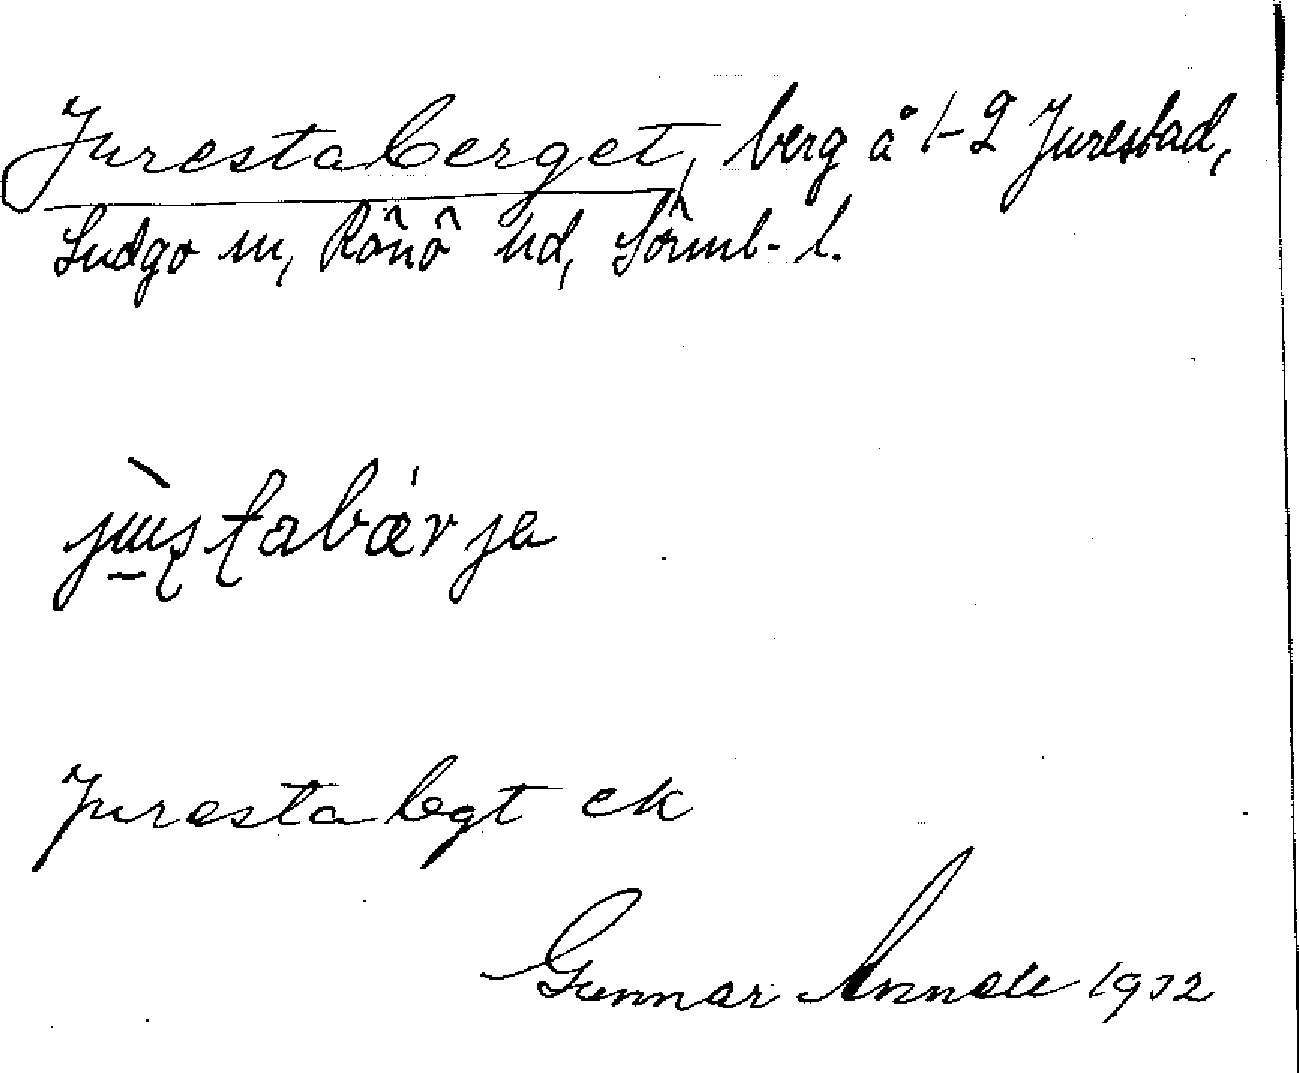 Jurestaberget, berg å 1-2 Jurestad,
Ludgo sn, Rönö hd, Sörml. l.
Jurestabgt ek
Gunnar Annell 1932